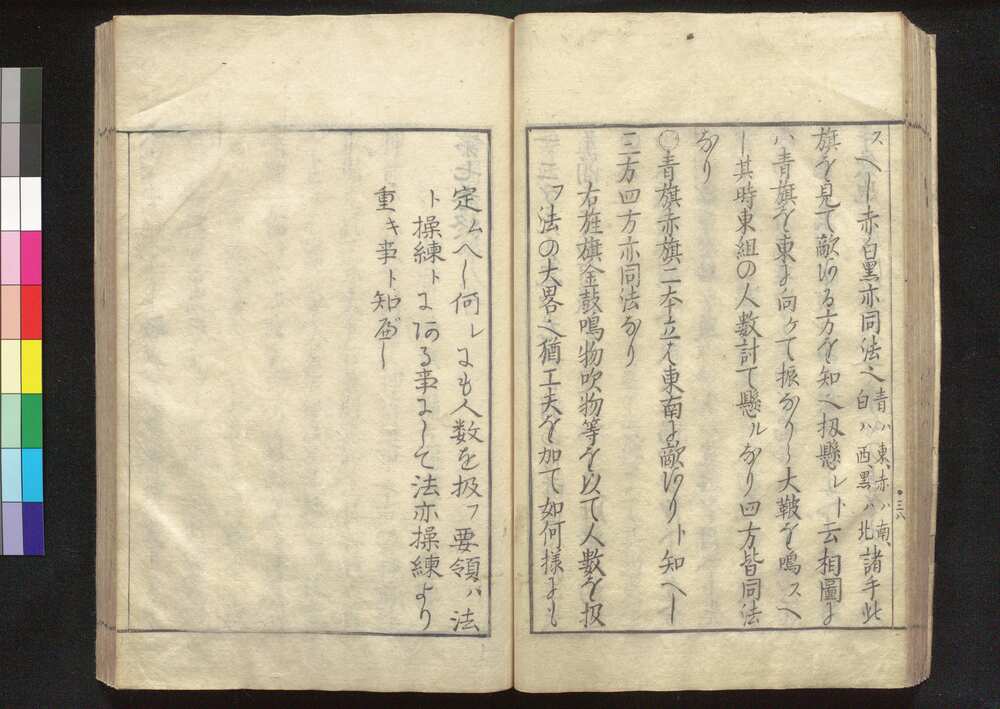 スヘし赤白黒亦同法也青ハ東、赤ハ南、白ハ西、黒ハ北諸手此
旗を見て敵ある方を知へ扨懸レト云相圖に
ハ青旗を東に向ケて振なから大鞁を鳴スヘ
し其時東組の人数計て懸ルなり四方皆同法
なり
〇青旗赤旗二本立は東南に敵ありト知へし
三方四方亦同法なり
右旌旗金鼓鳴物吹物等を以て人数を扱
フ法の大畧也猶工夫を加て如何様にも
定ムへし何レにも人数を扱フ要領ハ法
ト操練トにある事にして法亦操練より
重キ事ト知べし
三八